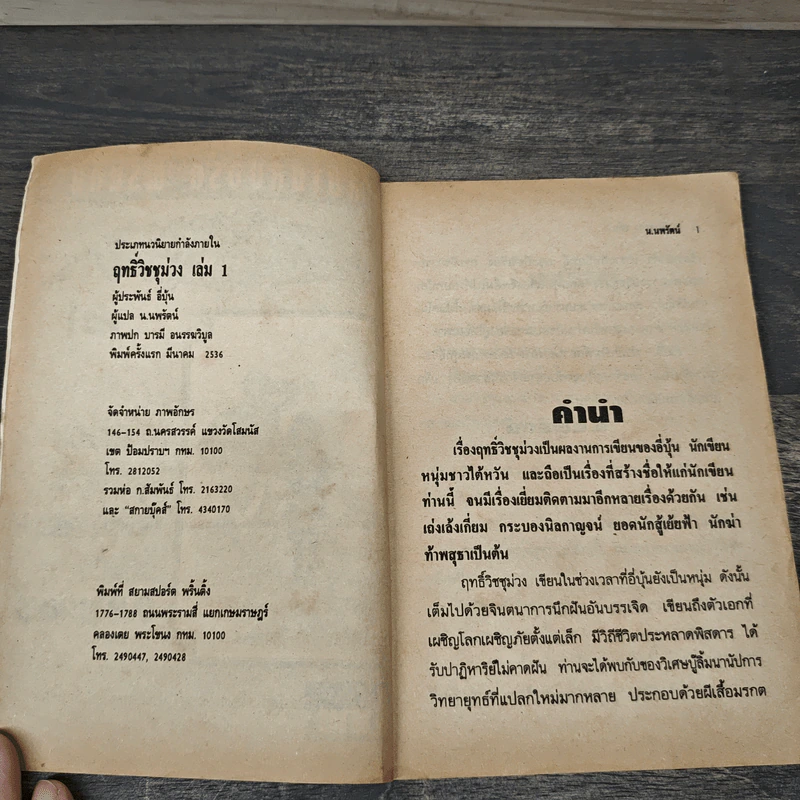 ประเภทนวนิยายกำลังภายใน
ฤทธิ์วิชชุม่วง เล่ม 1
ผู้ประพันธ์ อี้บุ้น
ผู้แปล น.นพรัตน์
ภาพปก บารมี อนรรฆวิบูล
พิมพ์ครั้งแรก มีนาคม 2536
จัดจำหน่าย ภาพอักษร
146-154 ถ.นครสวรรค์ แขวงวัดโสมนัส
เขต ป้อมปราบฯ กทม. 10100
โทร. 2812052
รวมห่อ ก.สัมพันธ์ โทร. 2163220
และ "สกายบุ๊คส์" โทร. 4340170
พิมพ์ที่ สยามสปอร์ต พริ้นติ้ง
1776-1788 ถนนพระรามสี่ แยกเกษมราษฎร์
คลองเตย พระโขนง กทม. 10100
โทร. 2490447, 2490428
น.นพรัตน์ 1
คำนำ
เรื่องฤทธิ์วิชชุม่วงเป็นผลงานการเขียนของอี้บุ้น นักเขียน
หนุ่มชาวไต้หวัน และถือเป็นเรื่องที่สร้างชื่อให้แก่นักเขียน
ท่านนี้ จนมีเรื่องเยี่ยมติดตามมาอีกหลายเรื่องด้วยกัน เช่น
เฉ่งเล้งเกี่ยม กระบองนิลกาญจน์ ยอดนักสู้เย้ยฟ้า นักฆ่า
ท้าพสุธาเป็นต้น
ฤทธิ์วิชชุม่วง เขียนในช่วงเวลาที่อี้บุ้นยังเป็นหนุ่ม ดังนั้น
เต็มไปด้วยจินตนาการนึกฝันอันบรรเจิด เขียนถึงตัวเอกที่
เผชิญโลกเผชิญภัยตั้งแต่เล็ก มีวิถีชีวิตประหลาดพิสดาร ได้
รับปาฏิหาริย์ไม่คาดฝัน ท่านจะได้พบกับของวิเศษบู๊ลิ้มนานัปการ
วิทยายุทธ์ที่แปลกใหม่มากหลาย ประกอบด้วยผีเสื้อมรกต